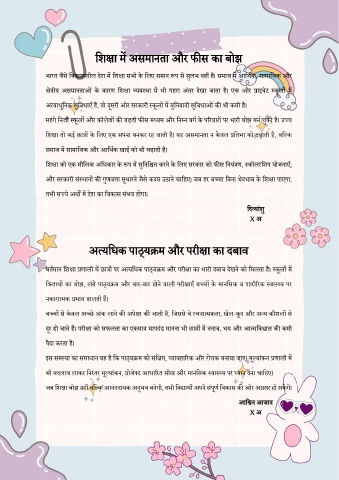 शिक्षा में असमानता और फीस का बोझ
भारत जैसे विकासशील देश में शिक्षा सभी के लिए समान रूप से सुलभ नहीं है। समाज में आर्थिक, सामाजिक और
क्षेत्रीय असमानताओं के कारण शिक्षा व्यवस्था में भी गहरा अंतर देखा जाता है। एक ओर प्राइवेट स्कूलों में
अत्याधुनिक सुविधाएँ हैं, तो दूसरी ओर सरकारी स्कूलों में बुनियादी सुविधाओं की भी कमी है।
महंगे निजी स्कूलों और कॉलेजों की बढ़ती फीस मध्यम और निम्न वर्ग के परिवारों पर भारी बोझ बन चुकी है। उच्च
शिक्षा तो कई छात्रों के लिए एक सपना बनकर रह जाती है। यह असमानता न केवल प्रतिभा को दबाती है, बल्कि
समाज में सामाजिक और आर्थिक खाई को भी बढ़ाती है।
शिक्षा को एक मौलिक अधिकार के रूप में सुनिश्चित करने के लिए सरकार को फीस नियंत्रण, स्कॉलरशिप योजनाएँ,
और सरकारी संस्थानों की गुणवत्ता सुधारने जैसे कदम उठाने चाहिए। जब हर बच्चा बिना भेदभाव के शिक्षा पाएगा,
तभी सच्चे अर्थों में देश का विकास संभव होगा।
दिव्यांशु
X अ
अत्यधिक पाठ्यक्रम और परीक्षा का दबाव
वर्तमान शिक्षा प्रणाली में छात्रों पर अत्यधिक पाठ्यक्रम और परीक्षा का भारी दबाव देखने को मिलता है। स्कूलों में
किताबों का बोझ, लंबे पाठ्यक्रम और बार-बार होने वाली परीक्षाएँ बच्चों के मानसिक व शारीरिक स्वास्थ्य पर
नकारात्मक प्रभाव डालती हैं।
बच्चों से केवल अच्छे अंक लाने की अपेक्षा की जाती है, जिससे वे रचनात्मकता, खेल-कूद और अन्य कौशलों से
दूर हो जाते हैं। परीक्षा को सफलता का एकमात्र मापदंड मानना भी छात्रों में तनाव, भय और आत्मविश्वास की कमी
पैदा करता है।
इस समस्या का समाधान यह है कि पाठ्यक्रम को संक्षिप्त, व्यावहारिक और रोचक बनाया जाए। मूल्यांकन प्रणाली में
भी बदलाव लाकर निरंतर मूल्यांकन, प्रोजेक्ट आधारित सीख और मानसिक स्वास्थ्य पर ध्यान देना चाहिए।
जब शिक्षा बोझ नहीं बल्कि आनंददायक अनुभव बनेगी, तभी विद्यार्थी अपने संपूर्ण विकास की ओर अग्रसर हो सकेंगे।
आज़ाद
X अ